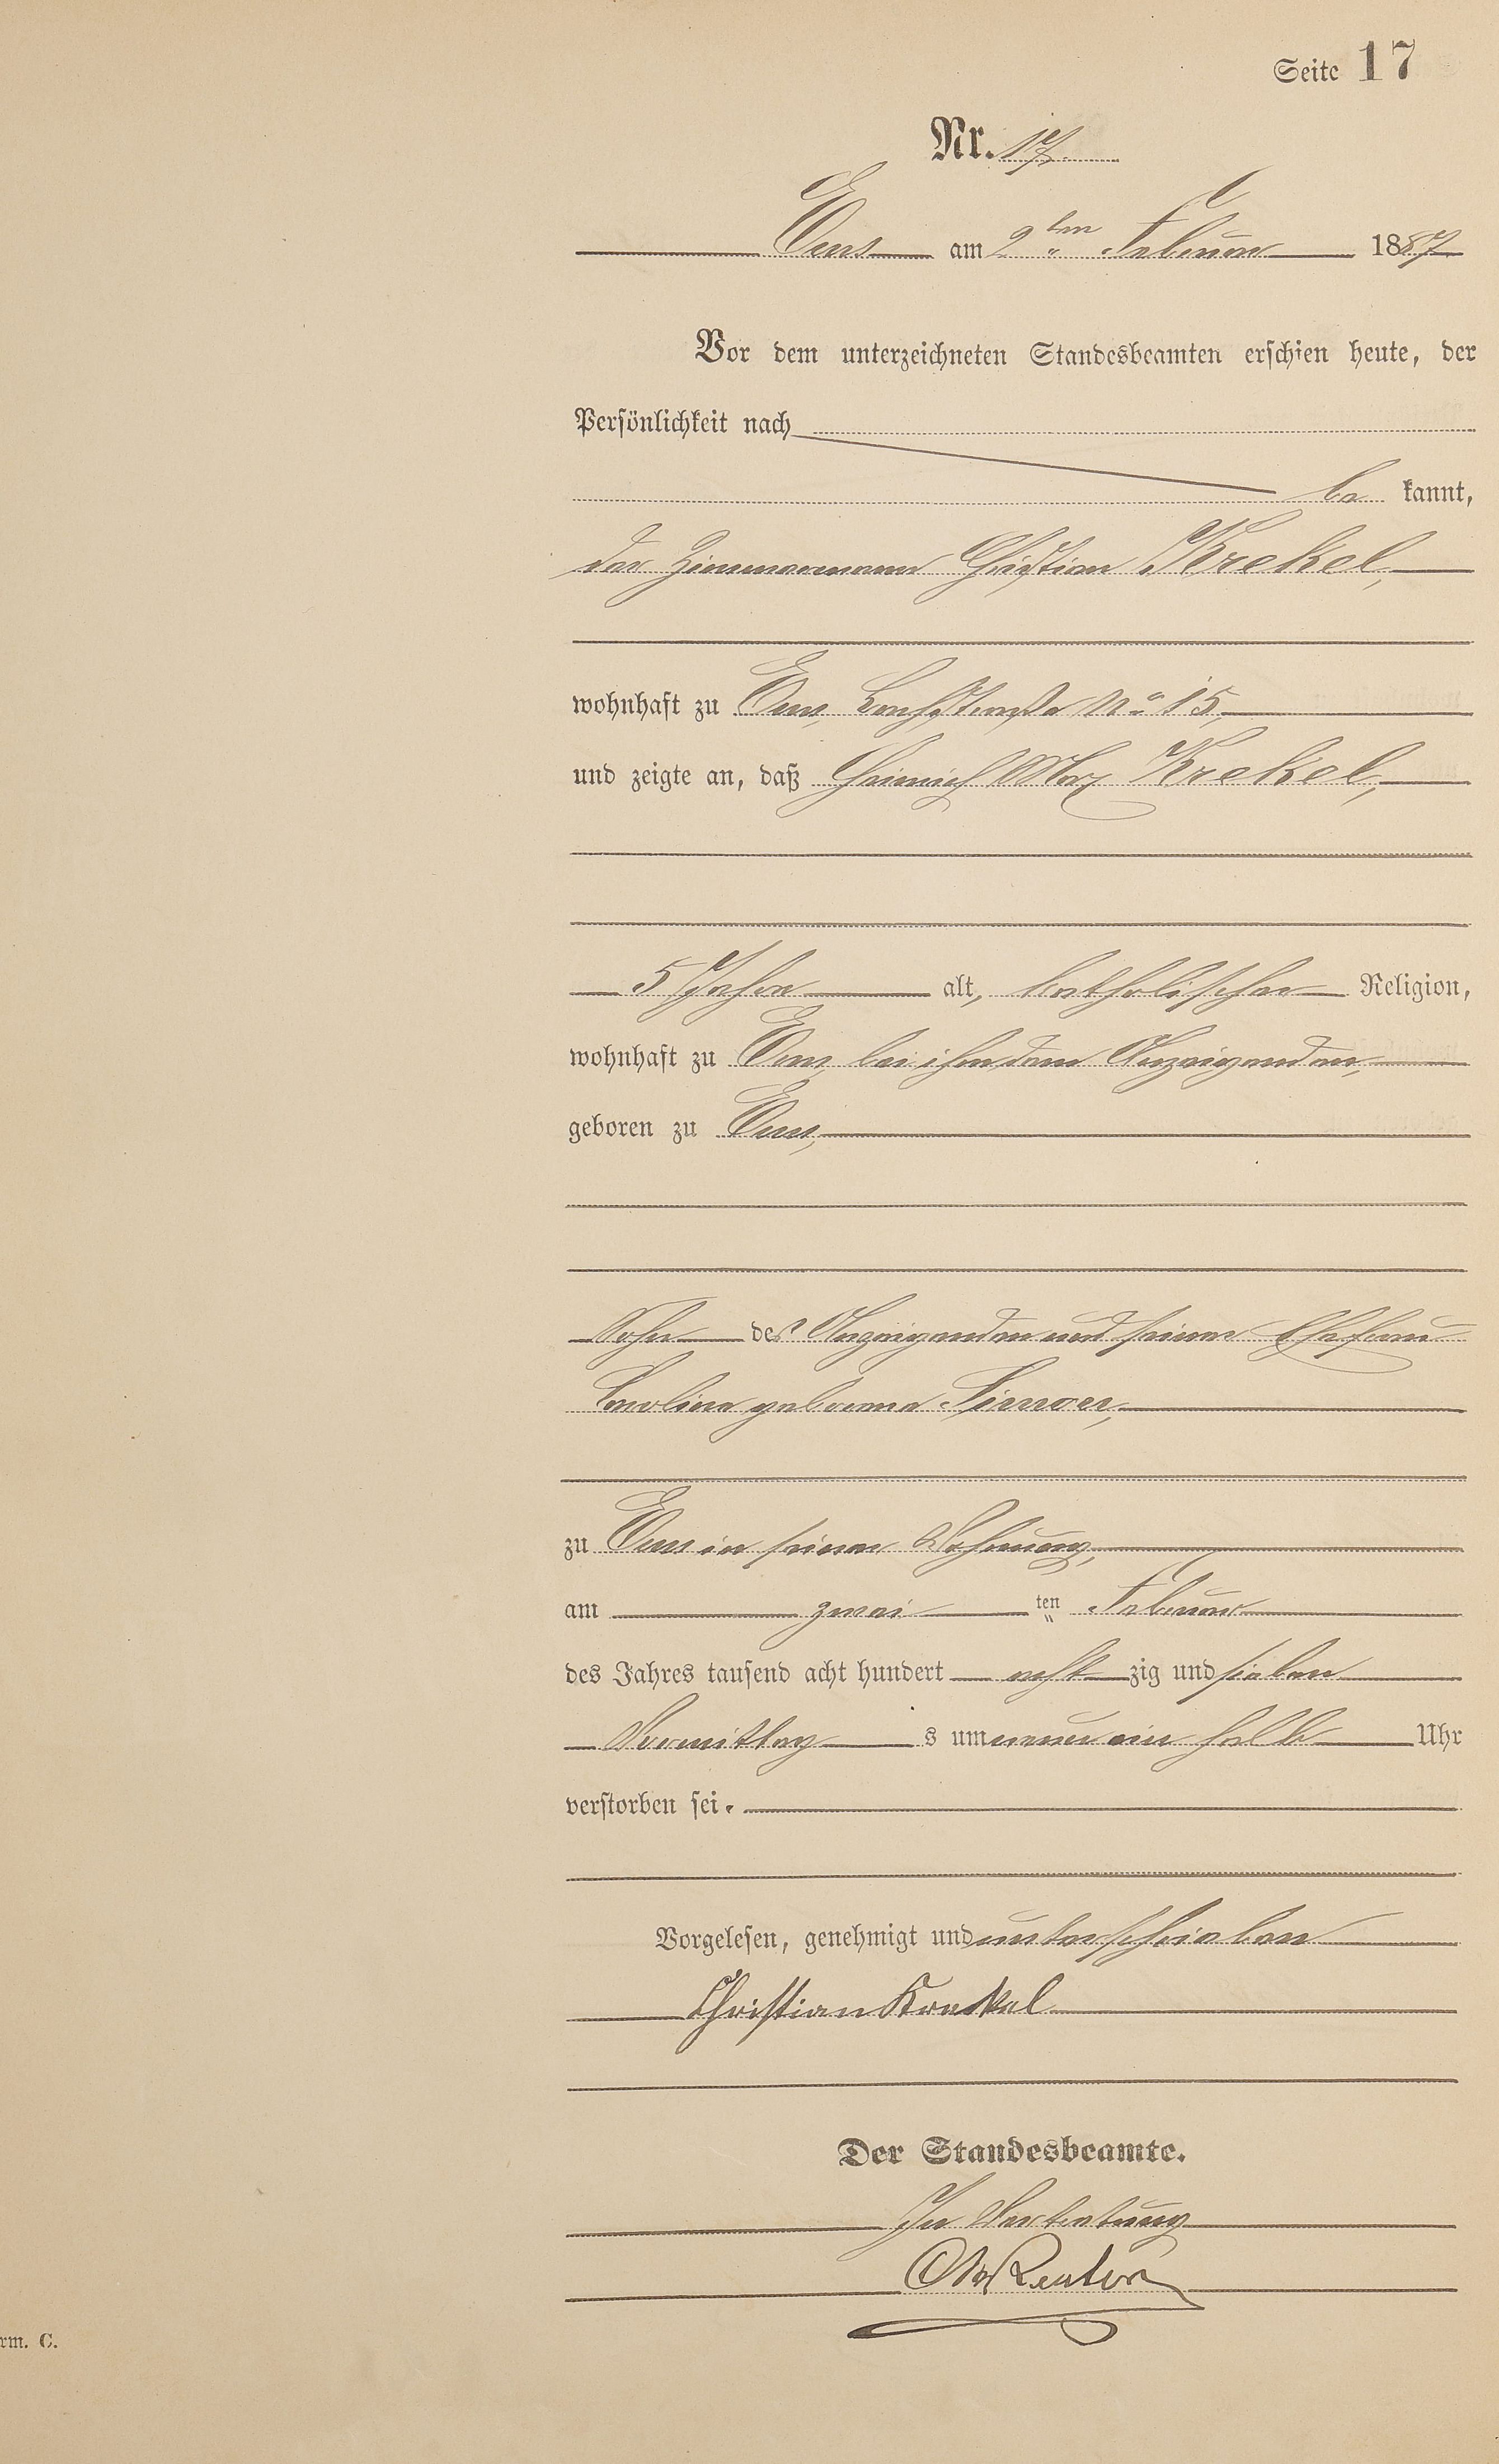 Seite 17
Nr. 17.
Ems am 2ten Februar 1887
Vor dem unterzeichneten Standesbeamten erschien heute, der
Persönlichkeit nach
be kannt,
der Zimmermann Christian Krekel,
wohnhaft zu Ems, No 15,
und zeigte an, daß Heinrich Max Krekel,
5 Jahre alt, katholischer Religion,
wohnhaft zu Ems, bei ihm dem Anzeigenden,
geboren zu Ems,
Sohn des Anzeigenden und seiner Ehefrau
Caroline geborene
zu Ems in seiner Wohnung,
am zwei ten Februar
des Jahres tausend acht hundert acht zig und sieben
Vormittag s um neun ein halb Uhr
verstorben sei.
Vorgelesen, genehmigt und unterschrieben
Christian Krekel
Der Standesbeamte.
In Vertretung
Reuter
rm. C.